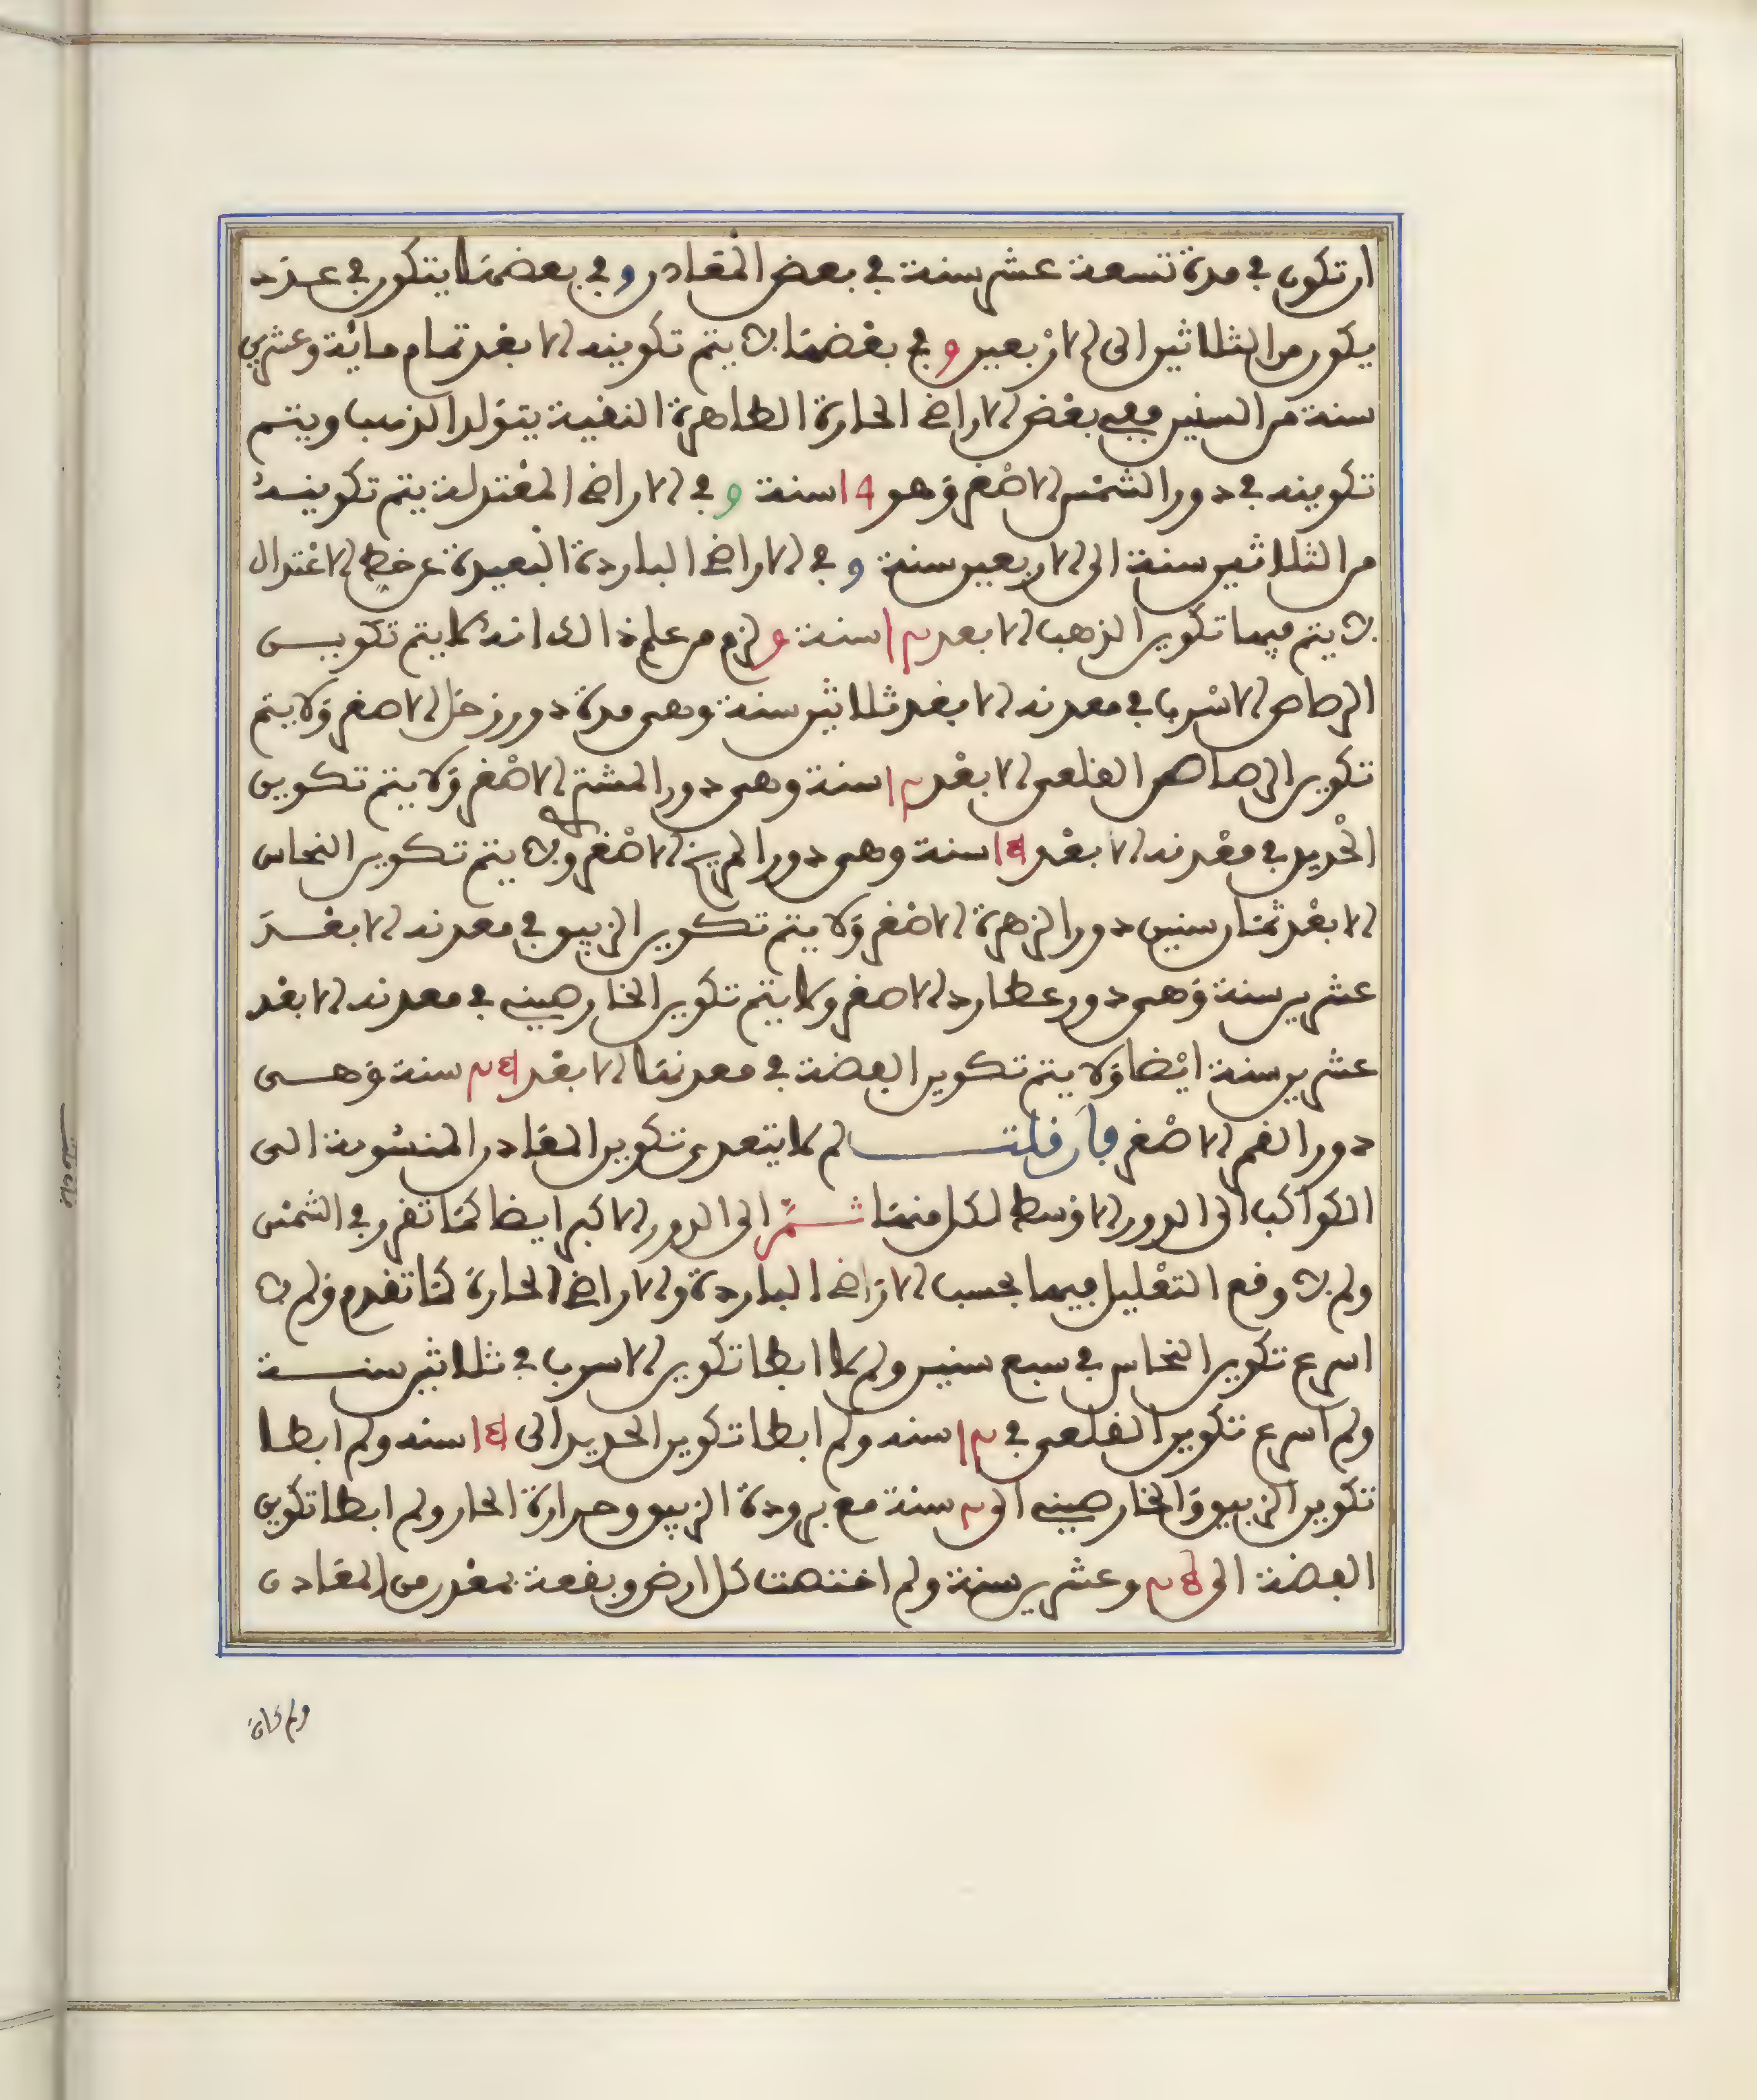 ان تكون في مدة تسعة عشر سنة في بعض المعادن وفي بعضها يتكون في عدد
يكون من الثلاثين الى الاربعين وفي بعضها لا يتم تكوينه الا بعد تمام مائة وعشرين
سنة من السنين ففي بعض الاراضي الحارة الطاهرة النقية يتولد الذهب ويتم
تكوينه في دور الشمس الاصغر وهو 19 سنة وفي الاراضي المعتدلة يتم تكوينه
من الثلاثين سنة الى الاربعين سنة وفي الاراضي الباردة البعيدة عن خط الاعتدال
لا يتم فيها تكوين الذهب الا بعد سنة ولزم من علم ذالك انه لا يتم تكوين
الرصاص الاسرب في معدنه الا بعد ثلاثين سنة وهي مدة دور زحل الاصغر ولا يتم
تكوين الرصاص القلعي الا بعد 12 سنة وهي دور المشتري الاصغر ولا يتم تكوين
الحديد في معدنه الا بعد 15 سنة وهي دور المريخ الاصغر ولا يتم تكوين النحاس
الا بعد ثمان سنين دور الزهرة الاصغر ولا يتم تكوين الزيبق في معدنه الا بعد
عشرين سنة وهي دور عطارد الاصغر ولا يتم تكوين الخارصيني في معدنه الا بعد
عشرين سنة ايضا ولا يتم تكوين الفضة في معدنها الا بعد 25 سنة وهي
دور القمر الاصغر فان قلت لم لا يتعدى تكوين المعادن المنسوبة الى
الكواكب الى الدور الاوسط لكل منها ثم الى الدور الاكبر ايضا كما تقرر في الشمس
ولم لا وقع التعليل فيها بحسب الاراضي الباردة والاراضي الحارة كما تقدم ولم لا
اسرع تكوين النحاس في سبع سنين ولم لا ابطا تكوين الاسرب في ثلاثين سنة
ولم اسرع تكوين القلعي في 12 سنه ولم ابطا تكوين الحديد الى 15 سنه ولم ابطا
تكوين الزيبق والخارصيني الى سنة مع برودة الزيبق وحرارة الحار ولم ابطا تكوين
الفضة الى وعشرين سنة ولم اختصت كل ارض وبقعة بمعدن من المعادن
ولم كان